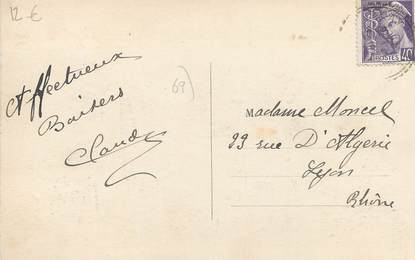 12-€
Affectueux
Baisers
Claude
69
40
POSTES
Madame Moncel
23 rue D'Algerie
Lyon
Rhône